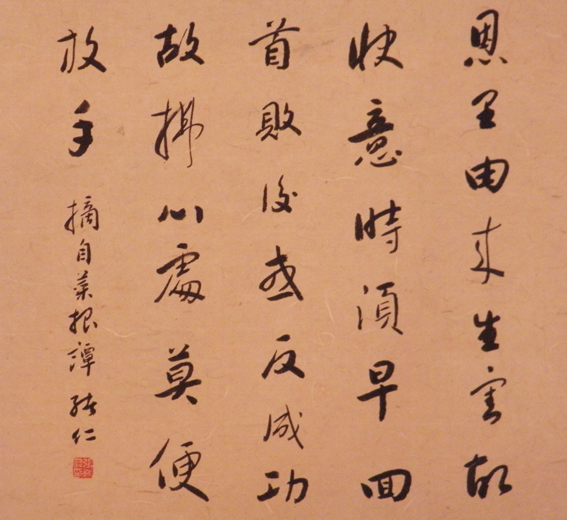 恩里由來生害故
快意時須早回
首敗後或反成功
故拂心處莫便
放手
摘自菜根譚 仁